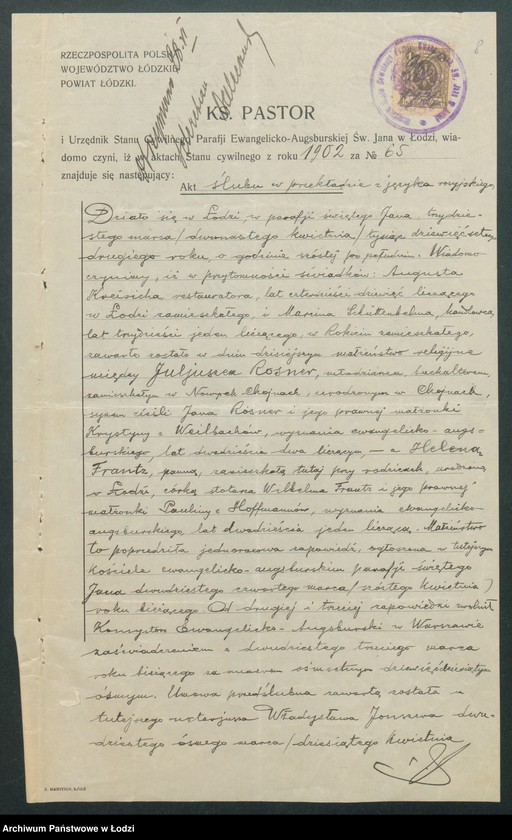 RZECZPOSPOLITA POLSKA
WOJEWÓDZTWO ŁÓDZKIE
POWIAT ŁÓDZKI.
8
KS. PASTOR
i Urzędnik Stanu Cywilnego Parafji Ewangelicko-Augsburskiej Św. Jana w Łodzi, wia-
domo czyni, iż w aktach Stanu cywilnego z roku 1902 za № 65
znajduje się następujący:
Akt ślubu w przekładzie z języka rosyjskiego,
Działo się w Łodzi, w parafji świętego Jana trzydzie-
stego marca/dwunastego kwietnia/tysiąc dziewięćset
drugiego roku, o godzinie szóstej po południu. Wiadomo
czynimy, iż w przytomności świadków: Augusta
restauratora, lat czterdzieści dziewięć liczącego
w Łodzi zamieszkałego, i Marcina
lat trzydzieści jeden liczącego, w Rokiciu zamieszkałego,
zawarto zostało w dniu dzisiejszym małżeństwo religijne
między Juljuszem Rosner, młodzianem, buchalterem,
zamieszkałym w Nowych Chojnach, urodzonym w Chojnach,
synem cieśli Jana Rosner i jego prawnej małżonki
Krystyny z Weilbachów, wyznania ewangelicko-augs-
burskiego, lat dwadzieścia dwa liczącym, — a Heleną
Frantz, panną, zamieszkałą tutaj przy rodzicach, urodzoną
w Łodzi, córką stolarza Wilhelma Frantz i jego prawnej
małżonki Pauliny z Hoffmannów, wyznania ewangelicko-
augsburskiego, lat dwadzieścia jeden liczącą. Małżeństwo
to poprzedziła jednorazowa zapowiedź, ogłoszona w tutejszym
kościele ewangelicko-augsburskim parafji świętego
Jana dwudziestego czwartego marca/szóstego kwietnia/
roku bieżącego. Od drugiej i trzeciej zapowiedzi zwolnił
Konsystorz Ewangelicko-Augsburski w Warszawie
zaświadczeniem z dwudziestego trzeciego marca
roku bieżącego za numerem ośmsetnym dziewięćdziesiątym
ósmym. Umowa przedślubna zawartą została u
tutejszego notarjusza Władysława Jonszera dwu-
dziestego ósmego marca/dziesiątego kwietnia
Archiwum Państwowe w Łodzi